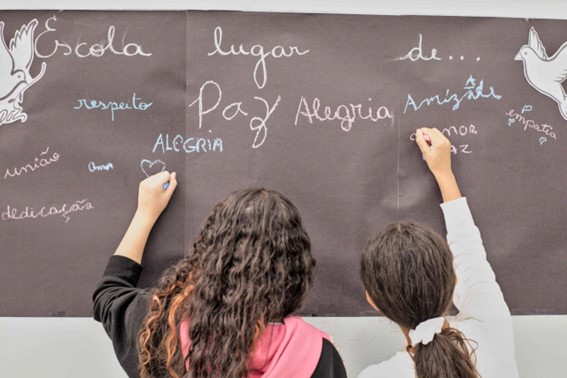 Escola lugar de...
respeito Paz Alegria Amizade
empatia
ALEGRIA AMOR
união amor PAZ
dedicação